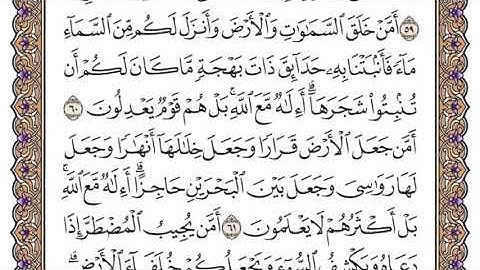 ٥٩ أَمَّنْ خَلَقَ ٱلسَّمَٰوَٰتِ وَٱلْأَرْضَ وَأَنزَلَ لَكُم مِّنَ ٱلسَّمَآءِ
مَآءً فَأَنۢبَتْنَا بِهِۦ حَدَآئِقَ ذَاتَ بَهْجَةٍ مَّا كَانَ لَكُمْ أَن
تُنۢبِتُوا۟ شَجَرَهَآ ۗ أَءِلَٰهٌ مَّعَ ٱللَّهِ ۚ بَلْ هُمْ قَوْمٌ يَعْدِلُونَ ٦٠
أَمَّن جَعَلَ ٱلْأَرْضَ قَرَارًا وَجَعَلَ خِلَٰلَهَآ أَنْهَٰرًا وَجَعَلَ
لَهَا رَوَٰسِىَ وَجَعَلَ بَيْنَ ٱلْبَحْرَيْنِ حَاجِزًا ۗ أَءِلَٰهٌ مَّعَ ٱللَّهِ ۚ
بَلْ أَكْثَرُهُمْ لَا يَعْلَمُونَ ٦١ أَمَّن يُجِيبُ ٱلْمُضْطَرَّ إِذَا
دَعَاهُ وَيَكْشِفُ ٱلسُّوٓءَ وَيَجْعَلُكُمْ خُلَفَآءَ ٱلْأَرْضِ ۗ